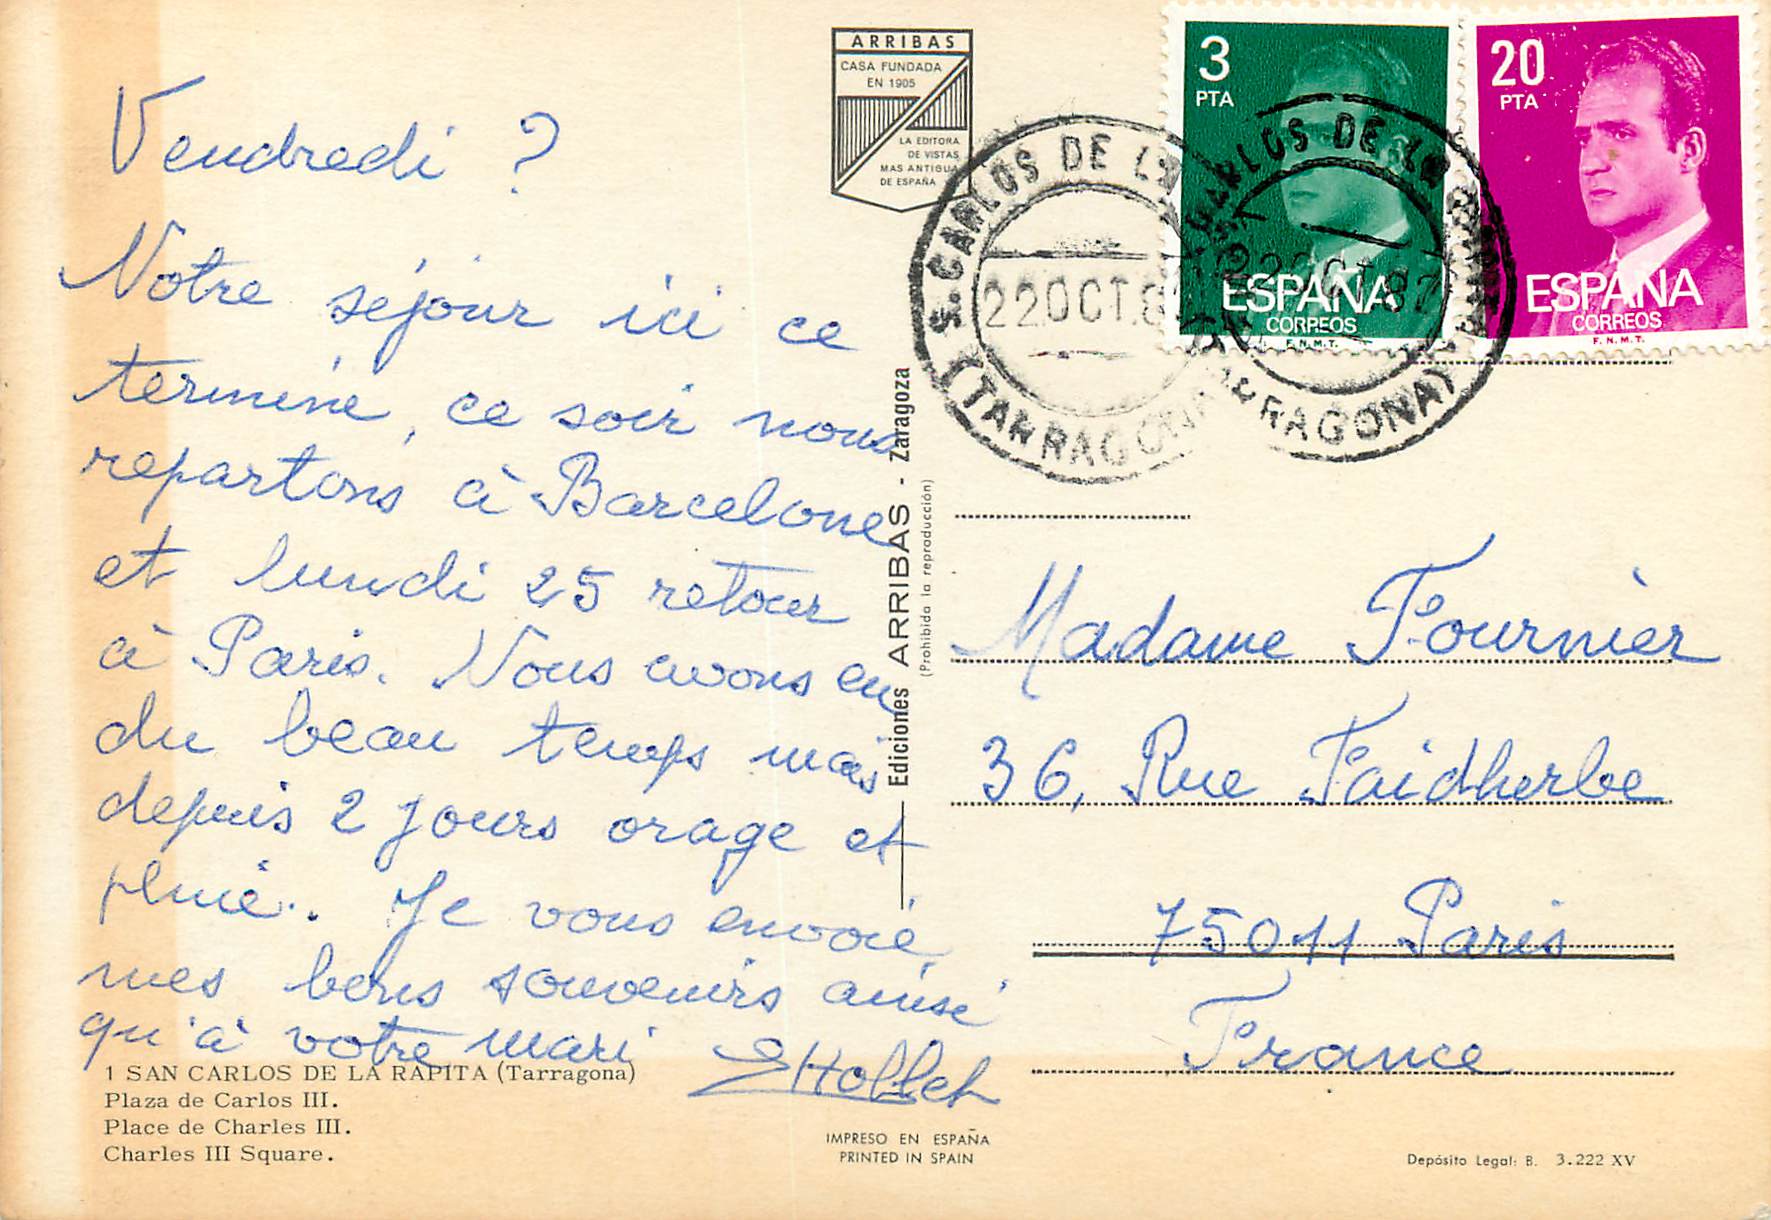 Vendredi ?
Notre séjour ici ce
termine, ce soir nous
repartons à Barcelone
et lundi 25 retour
à Paris. Nous avons eu
du beau temps mais
depuis 2 jours orage et
pluie. Je vous envoie
mes bons souvenirs ainsi
qu'à votre mari
1 SAN CARLOS DE LA RAPITA (Tarragona)
Plaza de Carlos III.
Place de Charles III.
Charles III Square.
ARRIBAS
CASA FUNDADA
EN 1905
LA EDITORA
DE VISTAS
MAS ANTIGUA
DE ESPAÑA
Ediciones ARRIBAS - Zaragoza
(Prohibida la reproducción)
IMPRESO EN ESPAÑA
PRINTED IN SPAIN
3
PTA
ESPAÑA
CORREOS
F. N. M. T.
20
PTA
ESPAÑA
CORREOS
F. N. M. T.
S. CARLOS DE LA
22 OCT. 8
(TARRAGONA)
CARLOS DE LA
22 OCT. 82
(TARRAGONA)
Madame Fournier
36, Rue Faidherbe
75011 Paris
France
Depósito Legal: B. 3.222 XV